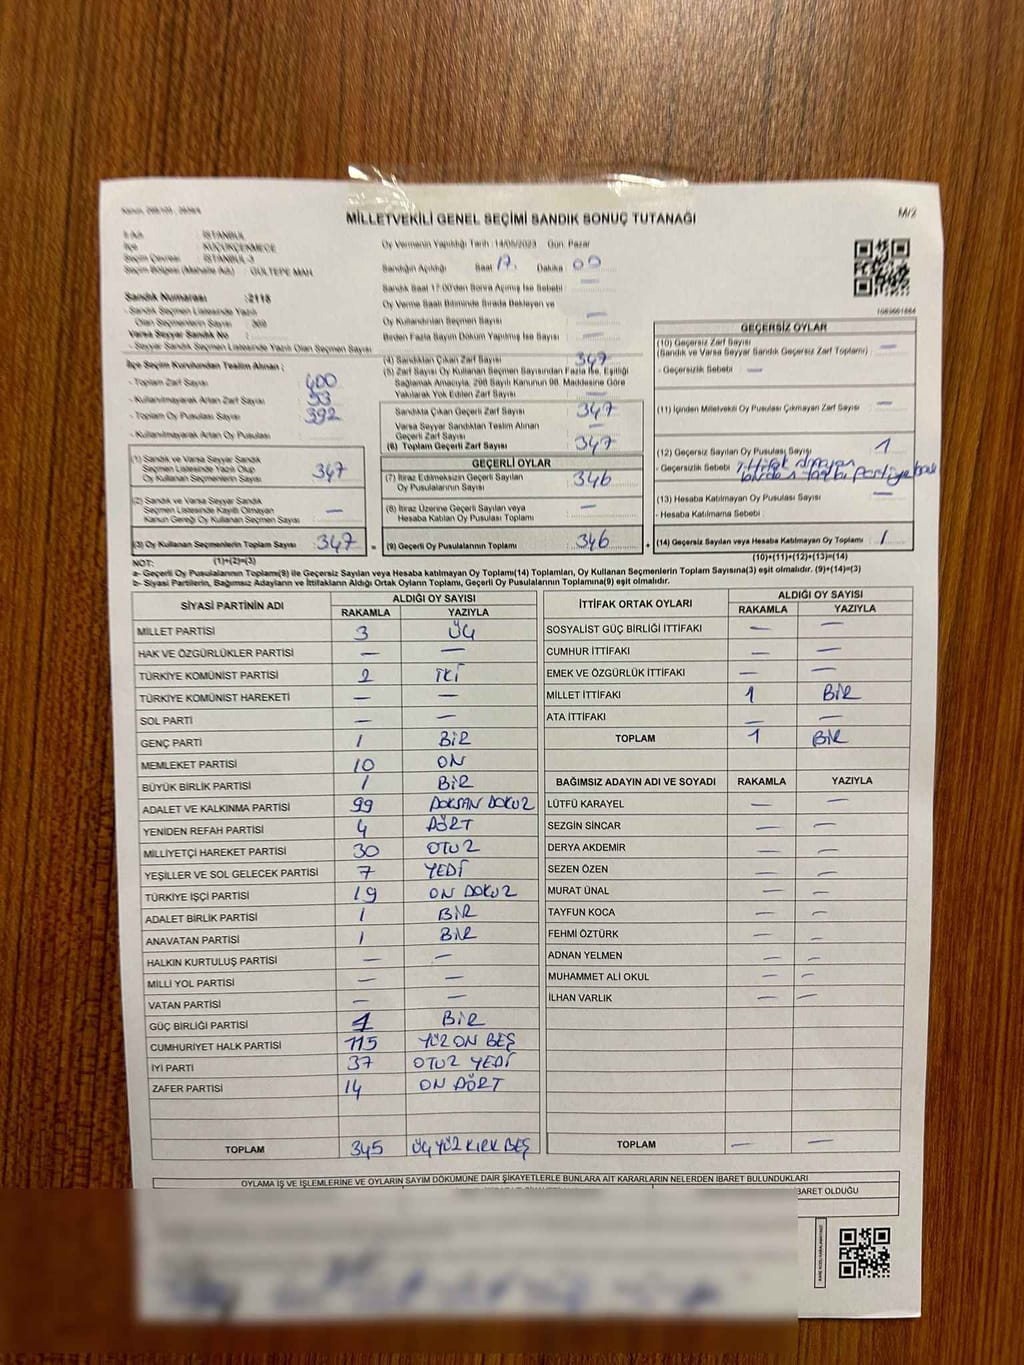 MİLLETVEKİLİ GENEL SEÇİMİ SANDIK SONUÇ TUTANAĞI
M/2
İli Adı : İSTANBUL
İlçe : KÜÇÜKÇEKMECE
Seçim Çevresi : İSTANBUL-3
Seçim Bölgesi (Mahalle Adı) : GÜLTEPE MAH
Sandık Numarası :2118
- Sandık Seçmen Listesinde Yazılı
Olan Seçmenlerin Sayısı :
Varsa Seyyar Sandık No :
- Seyyar Sandık Seçmen Listesinde Yazılı Olan Seçmen Sayısı
Oy Vermenin Yapıldığı Tarih :14/05/2023 Gün: Pazar
Sandığın Açıldığı Saat 17. Dakika 00
Sandık Saat 17:00'den Sonra Açılmış İse Sebebi —
Oy Verme Saati Bitiminde Sırada Bekleyen ve
Oy Kullandırılan Seçmen Sayısı —
Birden Fazla Sayım Döküm Yapılmış İse Sayısı —
İlçe Seçim Kurulundan Teslim Alınan :
- Toplam Zarf Sayısı 400
- Kullanılmayarak Artan Zarf Sayısı 53
- Toplam Oy Pusulası Sayısı 392
- Kullanılmayarak Artan Oy Pusulası
(1) Sandık ve Varsa Seyyar Sandık
Seçmen Listesinde Yazılı Olup
Oy Kullanan Seçmen Sayısı 347
(2) Sandık ve Varsa Seyyar Sandık
Seçmen Listesinde Kayıtlı Olmayan
Kanun Gereği Oy Kullanan Seçmen Sayısı —
(3) Oy Kullanan Seçmenlerin Toplam Sayısı 347 =
(1)+(2)=(3)
(4) Sandıktan Çıkan Zarf Sayısı 347
(5) Zarf Sayısı Oy Kullanan Seçmen Sayısından Fazla İse, Eşitliği
Sağlamak Amacıyla, 298 Sayılı Kanunun 98. Maddesine Göre
Yakılarak Yok Edilen Zarf Sayısı —
Sandıkta Çıkan Geçerli Zarf Sayısı 347
Varsa Seyyar Sandıktan Teslim Alınan
Geçerli Zarf Sayısı —
(6) Toplam Geçerli Zarf Sayısı 347
GEÇERLİ OYLAR
(7) İtiraz Edilmeksizin Geçerli Sayılan
Oy Pusulalarının Sayısı 346
(8) İtiraz Üzerine Geçerli Sayılan veya
Hesaba Katılan Oy Pusulası Toplamı —
(9) Geçerli Oy Pusulalarının Toplamı 346 +
GEÇERSİZ OYLAR
(10) Geçersiz Zarf Sayısı
(Sandık ve Varsa Seyyar Sandık Geçersiz Zarf Toplamı) —
- Geçersizlik Sebebi —
(11) İçinden Milletvekili Oy Pusulası Çıkmayan Zarf Sayısı —
(12) Geçersiz Sayılan Oy Pusulası Sayısı 1
- Geçersizlik Sebebi ittifak olmayan
birden fazla partiye
(13) Hesaba Katılmayan Oy Pusulası Sayısı —
- Hesaba Katılmama Sebebi :
(14) Geçersiz Sayılan veya Hesaba Katılmayan Oy Toplamı 1
(10)+(11)+(12)+(13)=(14)
NOT:
a- Geçerli Oy Pusulalarının Toplamı(9) ile Geçersiz Sayılan veya Hesaba katılmayan Oy Toplamı(14) Toplamları, Oy Kullanan Seçmenlerin Toplam Sayısına(3) eşit olmalıdır. (9)+(14)=(3)
b- Siyasi Partilerin, Bağımsız Adayların ve İttifakların Aldığı Ortak Oyların Toplamı, Geçerli Oy Pusulalarının Toplamına(9) eşit olmalıdır.
SİYASİ PARTİNİN ADI ALDIĞI OY SAYISI
RAKAMLA YAZIYLA
MİLLET PARTİSİ 3 ÜÇ
HAK VE ÖZGÜRLÜKLER PARTİSİ — —
TÜRKİYE KOMÜNİST PARTİSİ 2 İKİ
TÜRKİYE KOMÜNİST HAREKETİ — —
SOL PARTİ — —
GENÇ PARTİ 1 BİR
MEMLEKET PARTİSİ 10 ON
BÜYÜK BİRLİK PARTİSİ 1 BİR
ADALET VE KALKINMA PARTİSİ 99 DOKSAN DOKUZ
YENİDEN REFAH PARTİSİ 4 DÖRT
MİLLİYETÇİ HAREKET PARTİSİ 30 OTUZ
YEŞİLLER VE SOL GELECEK PARTİSİ 7 YEDİ
TÜRKİYE İŞÇİ PARTİSİ 19 ON DOKUZ
ADALET BİRLİK PARTİSİ 1 BİR
ANAVATAN PARTİSİ 1 BİR
HALKIN KURTULUŞ PARTİSİ — —
MİLLİ YOL PARTİSİ — —
VATAN PARTİSİ — —
GÜÇ BİRLİĞİ PARTİSİ 1 BİR
CUMHURİYET HALK PARTİSİ 115 YÜZ ON BEŞ
İYİ PARTİ 37 OTUZ YEDİ
ZAFER PARTİSİ 14 ON DÖRT
TOPLAM 345 ÜÇ YÜZ KIRK BEŞ
İTTİFAK ORTAK OYLARI ALDIĞI OY SAYISI
RAKAMLA YAZIYLA
SOSYALİST GÜÇ BİRLİĞİ İTTİFAKI — —
CUMHUR İTTİFAKI — —
EMEK VE ÖZGÜRLÜK İTTİFAKI — —
MİLLET İTTİFAKI 1 BİR
ATA İTTİFAKI — —
TOPLAM 1 BİR
BAĞIMSIZ ADAYIN ADI VE SOYADI RAKAMLA YAZIYLA
LÜTFÜ KARAYEL — —
SEZGİN SİNCAR — —
DERYA AKDEMİR — —
SEZEN ÖZEN — —
MURAT ÜNAL — —
TAYFUN KOCA — —
FEHMİ ÖZTÜRK — —
ADNAN YELMEN — —
MUHAMMET ALİ OKUL — —
İLHAN VARLIK — —
TOPLAM — —
OYLAMA İŞ VE İŞLEMLERİNE VE OYLARIN SAYIM DÖKÜMÜNE DAİR ŞİKAYETLERLE BUNLARA AİT KARARLARIN NELERDEN İBARET BULUNDUKLARI
BARET OLDUĞU